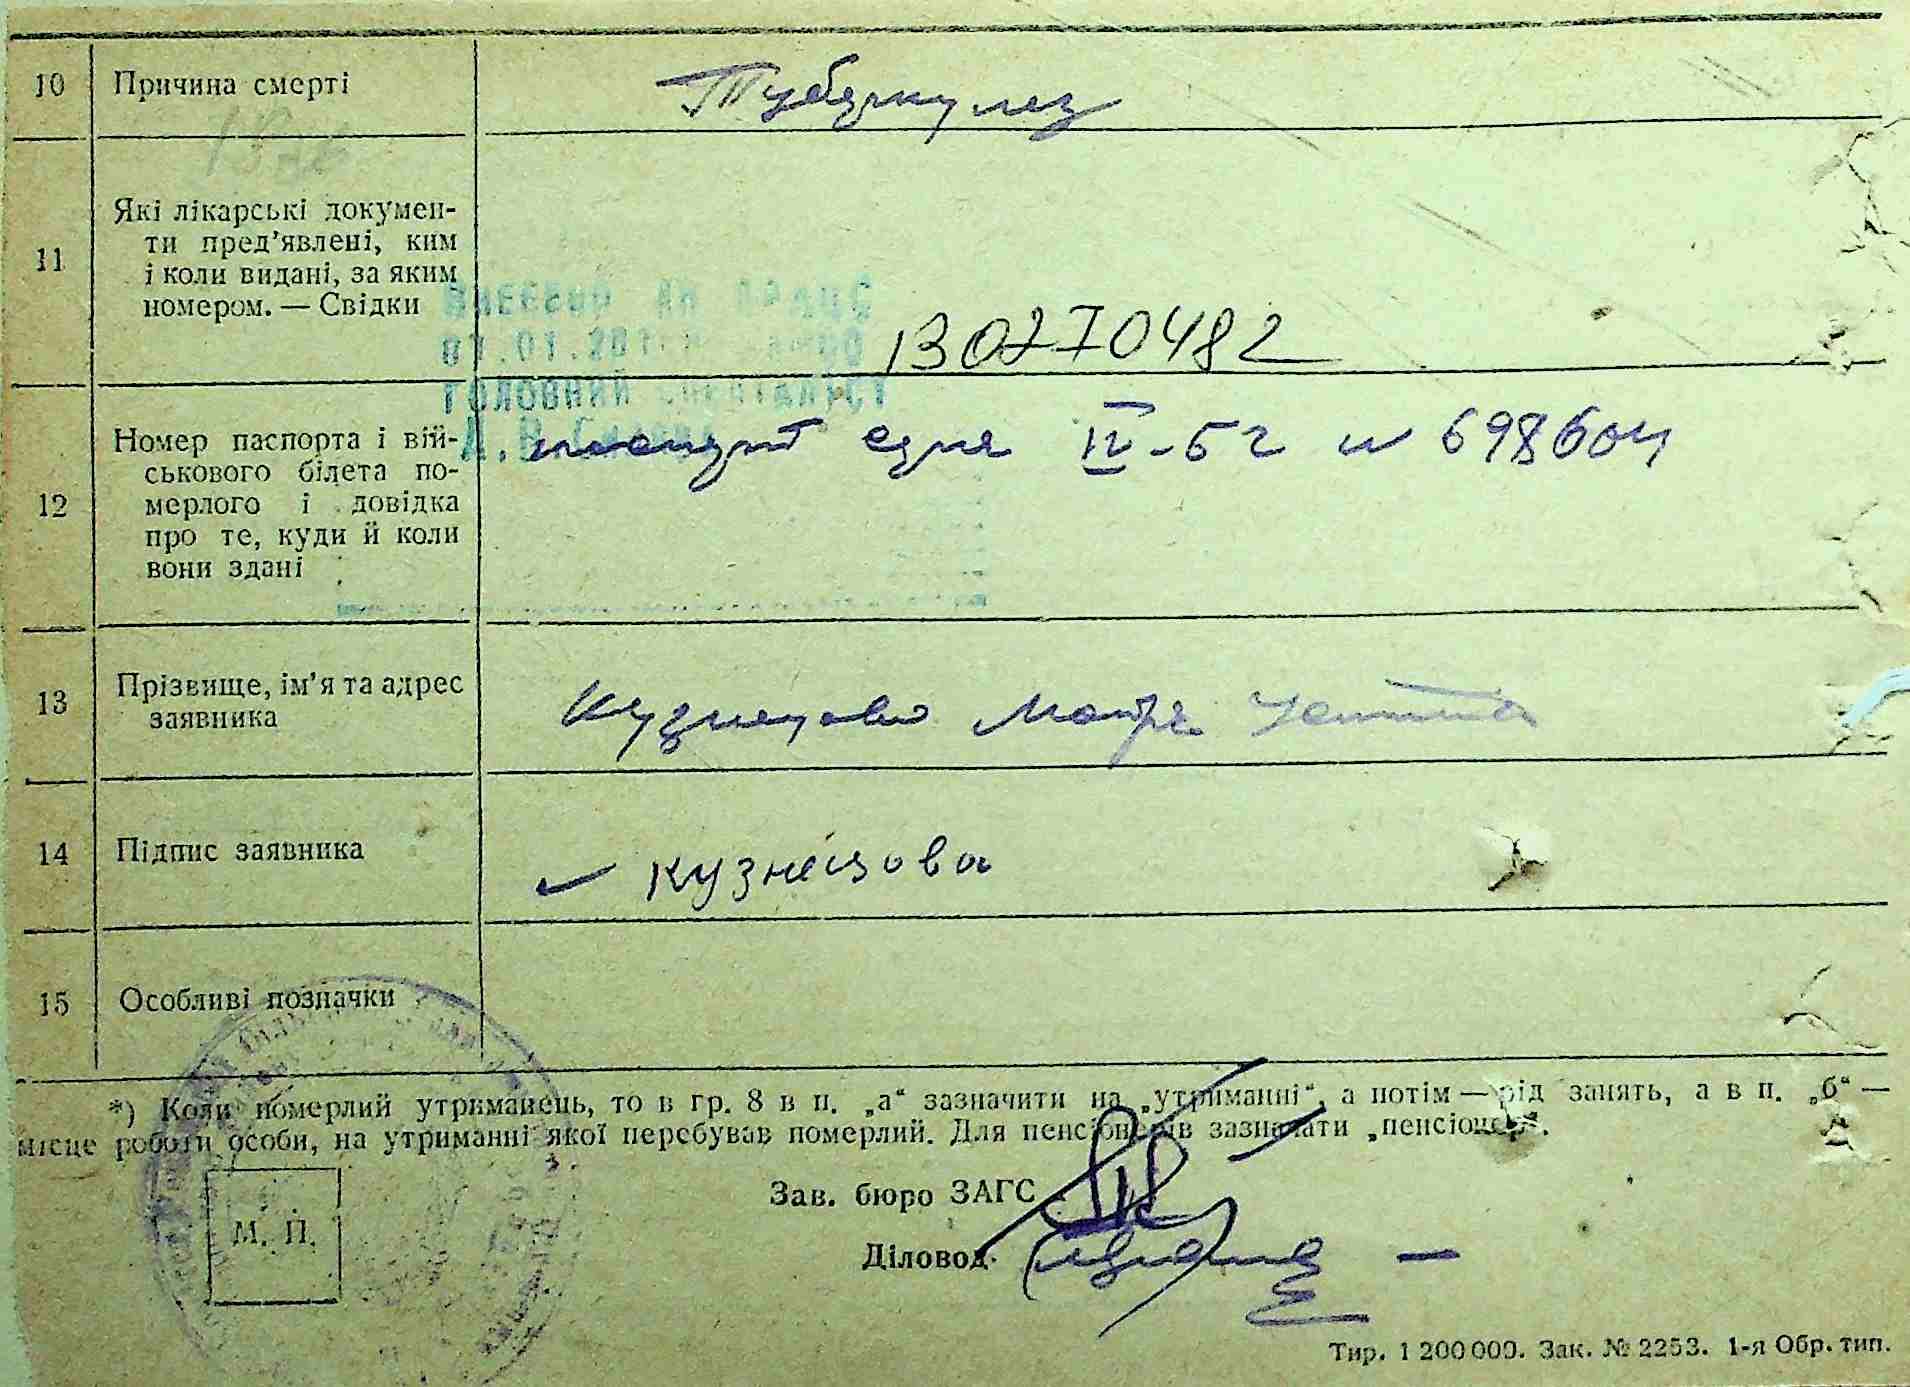 10 Причина смерті Туберкулез
11 Які лікарські докумен-
ти пред'явлені, ким
і коли видані, за яким
номером. — Свідки
130270482
ГОЛОВНИЙ СПЕЦІАЛІСТ
12 Номер паспорта і вій-
ськового білета по-
мерлого і довідка
про те, куди й коли
вони здані
IV-БГ № 698604
13 Прізвище, ім'я та адрес
заявника
Кузнецова
14 Підпис заявника Кузнецова
15 Особливі позначки
*) Коли померлий утриманець, то в гр. 8 в п. „а“ зазначити на „утриманні“, а потім — рід занять, а в п. „б“ —
місце роботи особи, на утриманні якої перебував померлий. Для пенсіонерів зазначати „пенсіонер“.
Зав. бюро ЗАГС
Діловод
М. П.
Тир. 1 200 000. Зак. № 2253. 1-я Обр. тип.